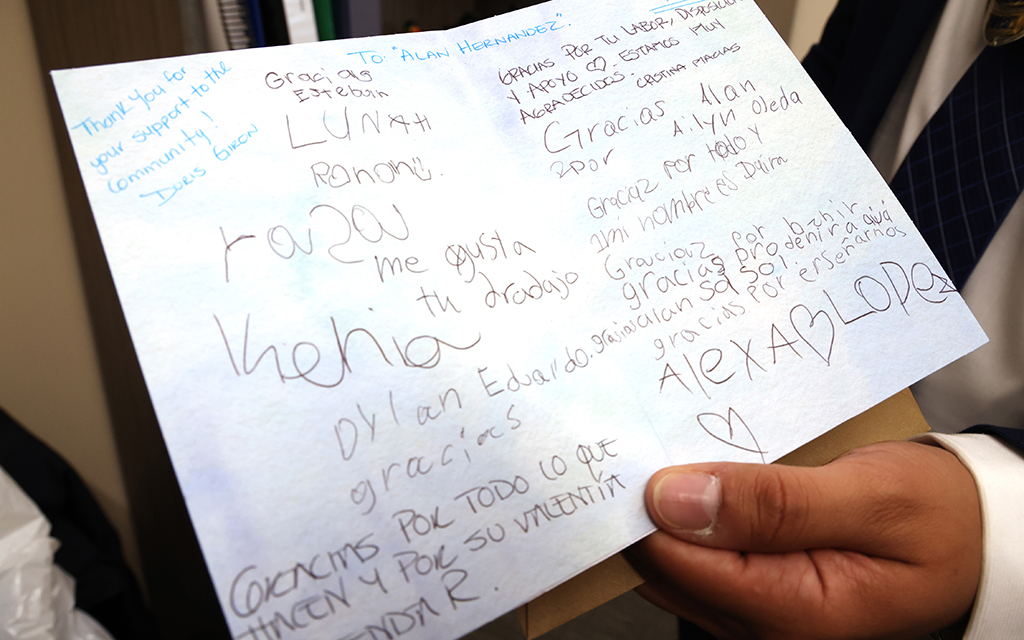 To: "ALAN HERNANDEZ".
Thank you for
your support to the
community!
DORIS GIRON
Gracias
Estebain
LUNAH
me gusta
tu dradajo
Kehia
Dylan Eduardo.
gracias
GRACIAS POR TODO LO QUE
HACEN Y POR SU VALENTIA
R.
GRACIAS POR TU LABOR, DISPOSICION
Y APOYO ♡. ESTAMOS MUY
AGRADECIDOS. CRISTINA MACIAS
Gracias Alan
2por Ailyn Oleda
Graciaz por todo y
mi nombre es Daira
Graciaz por bznir
gracias prodenir a
gracias por enseñarnos
AlexA♡LOPez
♡